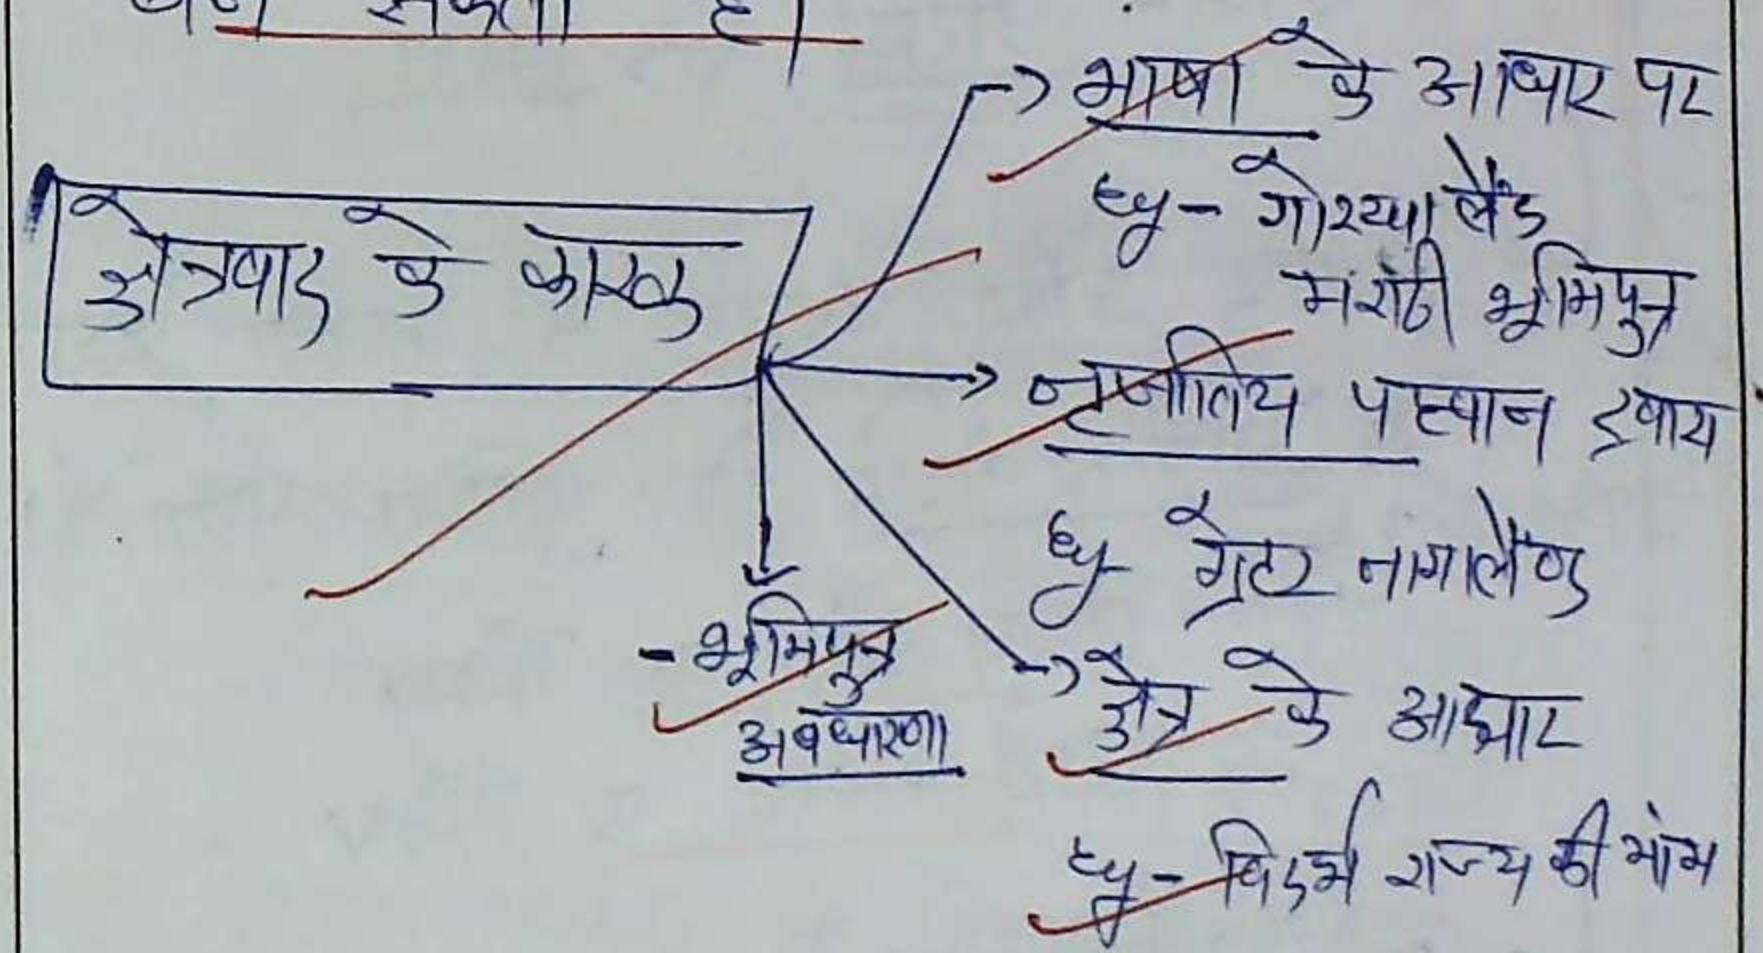 बन सकता है।
क्षेत्रवाद के कारक
→ भाषा के आधार पर
eg - गोरखा लैंड
मराठी भूमिपुत्र
→ नृजातिय पहचान दबाव
eg - ग्रेटर नागालैण्ड
→ क्षेत्र के आधार
eg - विदर्भ राज्य की मांग
- भूमिपुत्र
अवधारणा